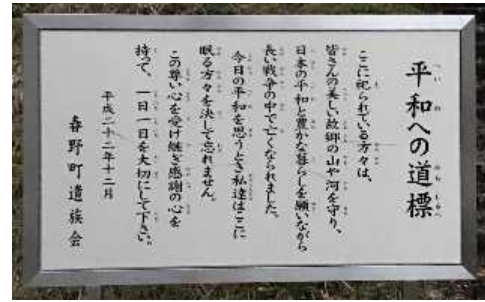 平和への道標
ここに祀られている方々は、
皆さんの美しい故郷の山や河を守り、
日本の平和と豊かな暮らしを願いながら
長い戦争の中で亡くなられました。
今日の平和を思うとき私達はここに
眠る方々を決して忘れません。
この尊い心を受け継ぎ感謝の心を
持って、一日一日を大切にして下さい。
平成二十二年十二月
春野町遺族会